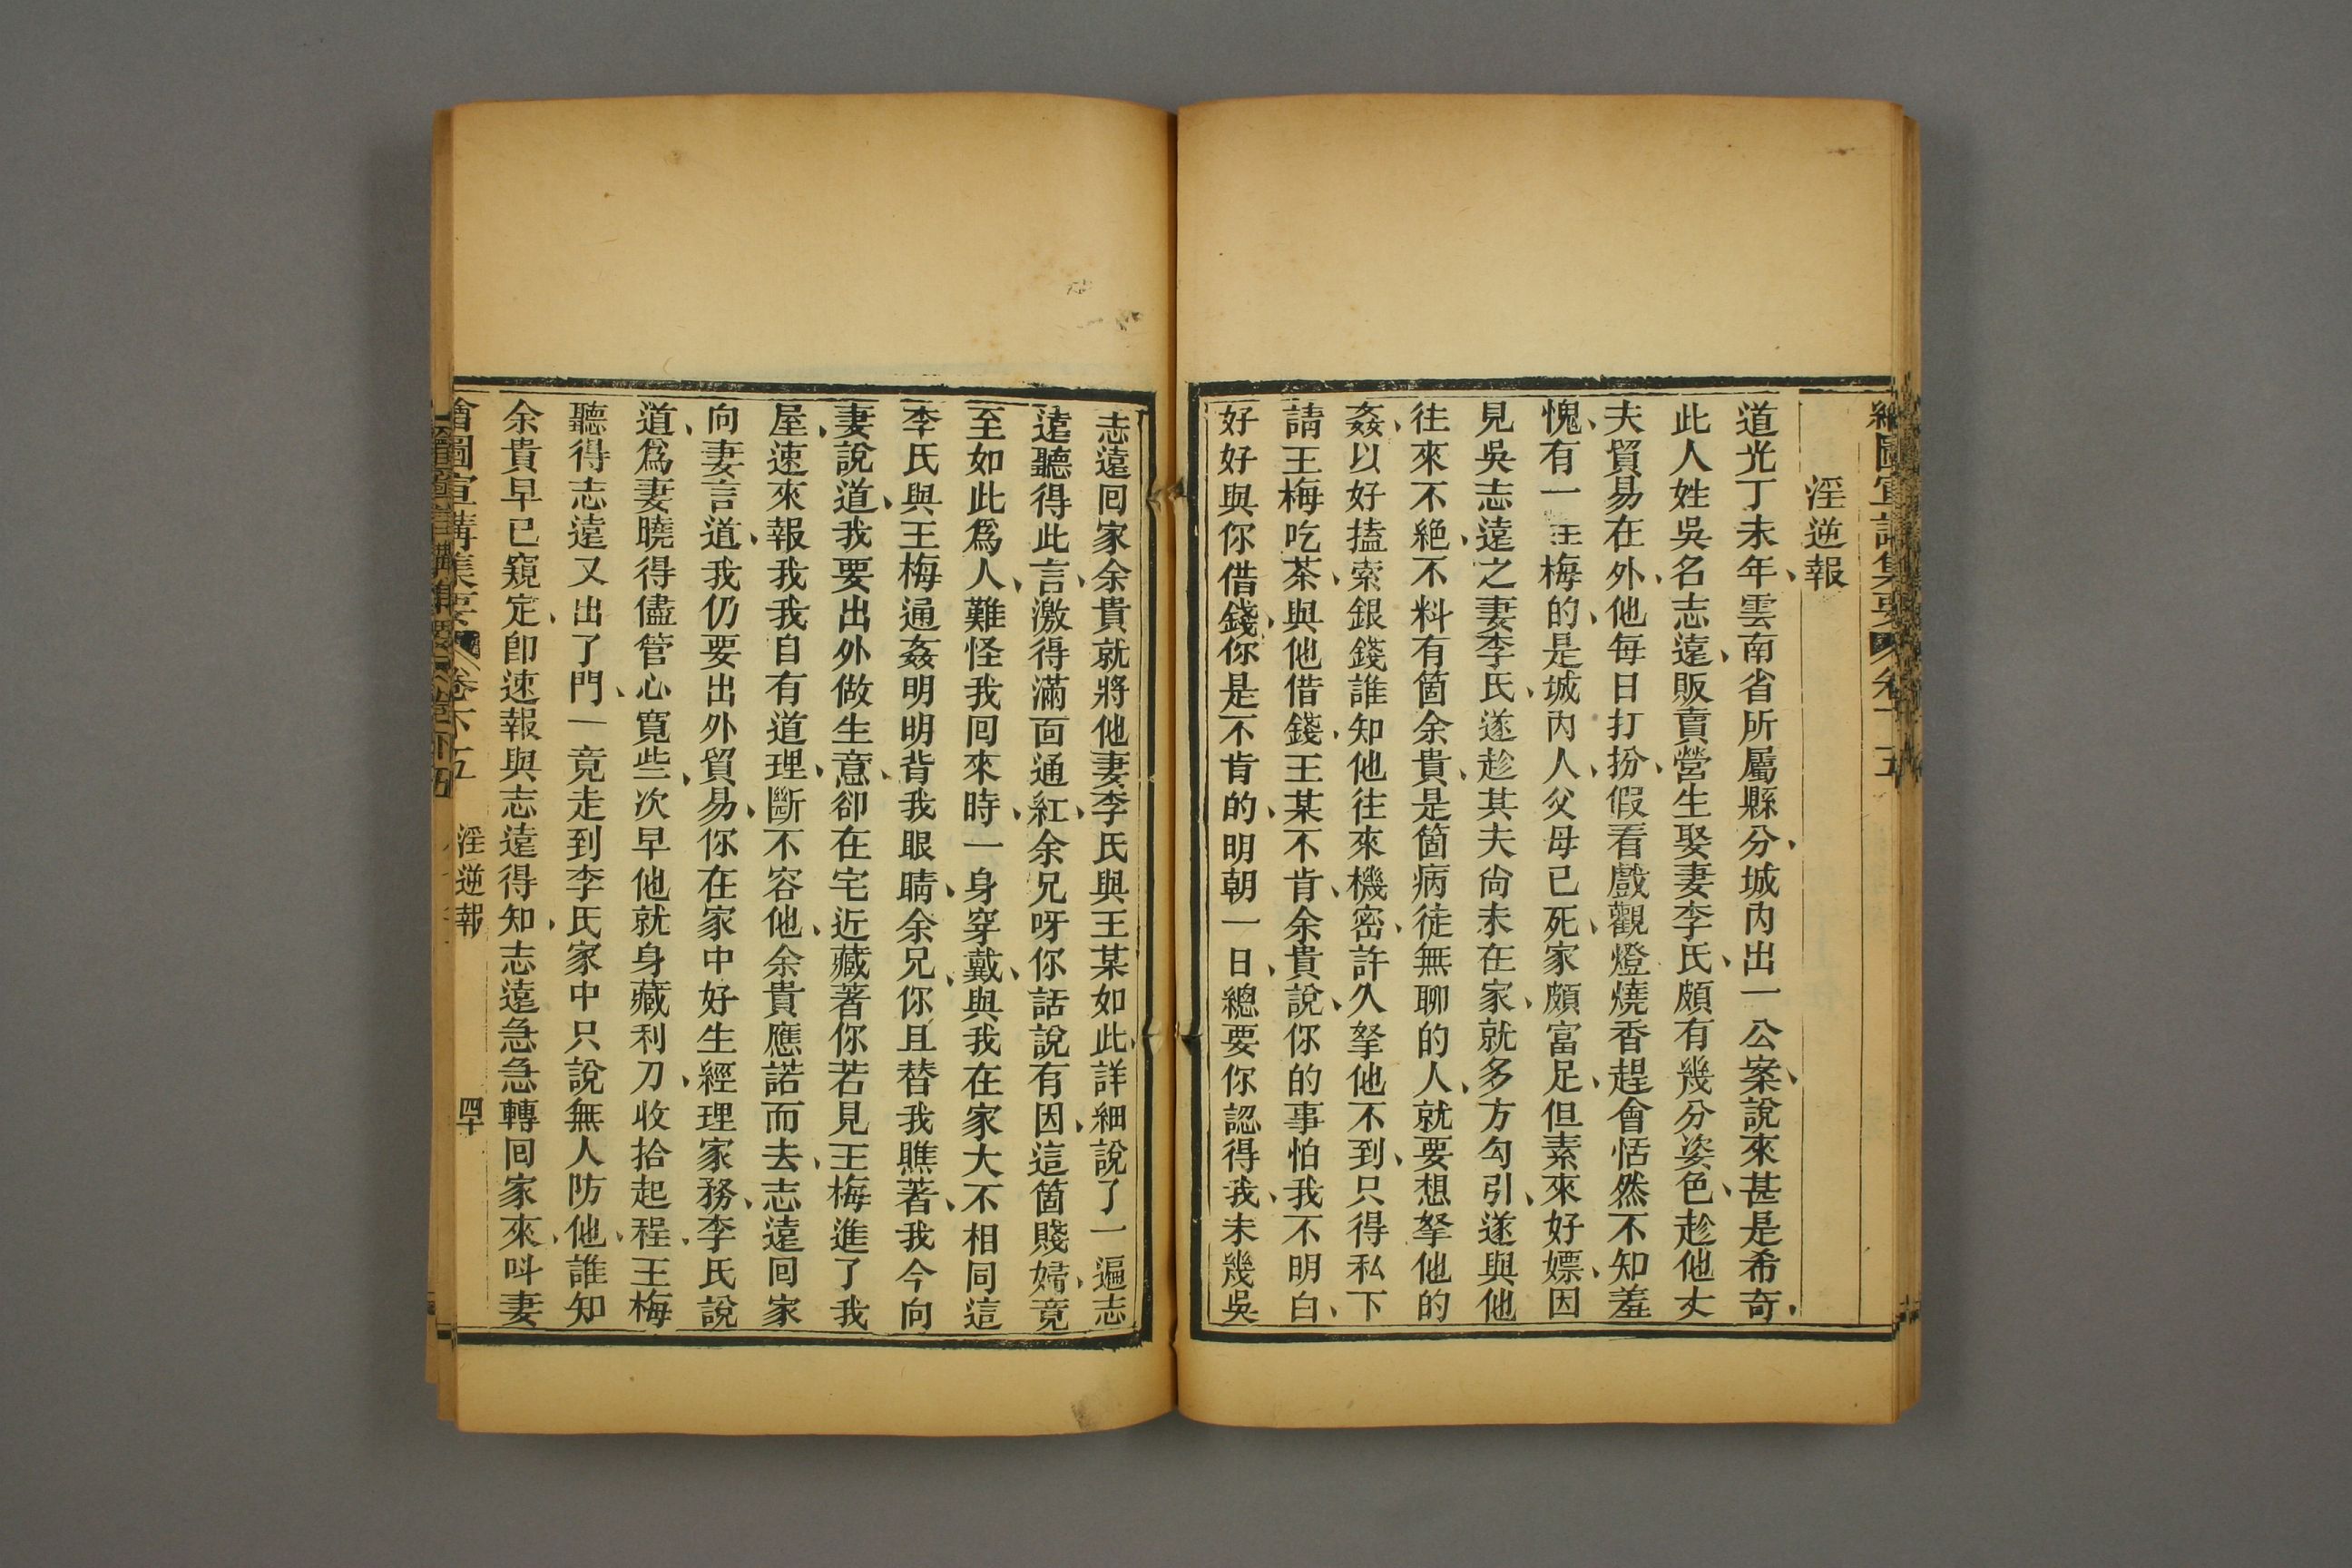 淫逆報
道光丁未年、雲南省所屬縣分、城內出一公案、說來甚是希奇、
此人姓吳名志遠、販賣營生娶妻李氏、頗有幾分姿色、趁他丈
夫貿易在外、他每日打扮、假看戲觀燈燒香趕會恬然不知羞
愧、有一王梅的、是城內人、父母已死、家頗富足、但素來好嫖、因
見吳志遠之妻李氏、遂趁其夫尙未在家、就多方勾引、遂與他
往來不絕、不料有箇余貴、是箇病徒無聊的人、就要想拏他的
姦、以好搕索銀錢誰知他往來機密、許久拏他不到、只得私下
請王梅吃茶、與他借錢、王某不肯、余貴說、你的事怕我不明白、
好好與你借錢、你是不肯的、明朝一日、總要你認得我、未幾吳
志遠回家余貴就將他妻李氏與王某如此詳細說了一遍志
遠聽得此言、激得滿面通紅、余兄呀你話說有因、這箇賤婦、竟
至如此爲人、難怪我回來時、一身穿戴、與我在家大不相同這
李氏與王梅通姦明明背我眼睛、余兄、你且替我瞧著、我今向
妻說道、我要出外做生意、卻在宅近藏著你若見王梅進了我
屋、速來報我我自有道理、斷不容他、余貴應諾而去、志遠回家
向妻言道、我仍要出外貿易、你在家中好生經理家務、李氏說
道、爲妻曉得儘管心寬些、次早他就身藏利刀、收拾起程、王梅
聽得志遠又出了門、一竟走到李氏家中只說無人防他、誰知
余貴早已窺定、卽速報與志遠得知、志遠急急轉回家來、呌妻
會圖宣講集要 卷下五 淫逆報 四十